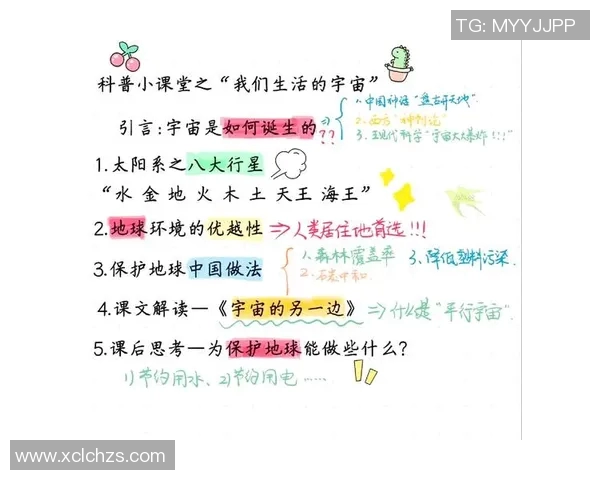 TG: MYYJJPP
科普小课堂之“我们生活的宇宙”
引言:宇宙是如何诞生的 ⇒??
1、中国神话“盘古开天地”
2、西方“神创论”
3、现代科学“宇宙大爆炸!!!”
1.太阳系之八大行星
“水 金 地 火 木 土 天王 海王”
2.地球环境的优越性 ⇒人类居住地首选!!!
3.保护地球中国做法
1、森林覆盖率
2、碳中和
3、降低塑料污染.
4.课文解读—《宇宙的另一边》 ⇒什么是“平行宇宙”.
5.课后思考—为保护地球能做些什么?
1)节约用水、2)节约用电……
www.xclchzs.com